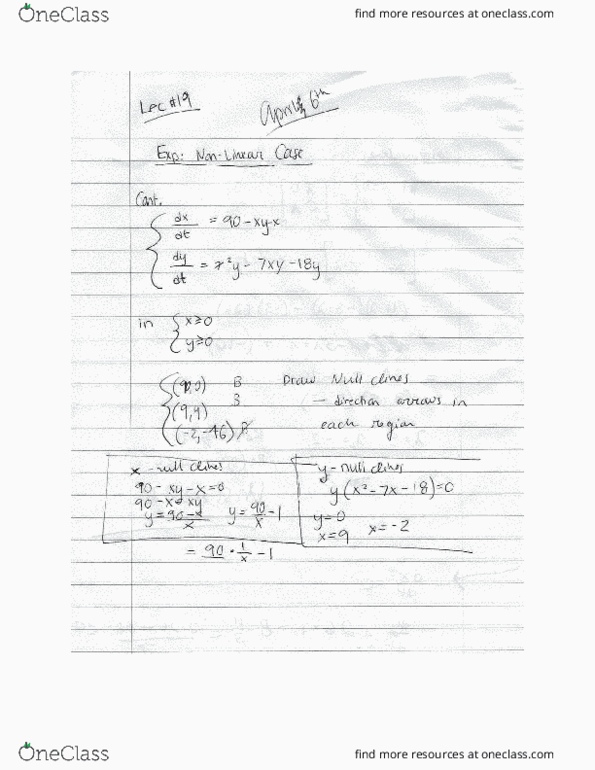 OneClass
find more resources at oneclass.com
Lec #19 April 6th
Exp: Non-Linear Case
Cont.
dx/dt = 90 - xy - x
dy/dt = x²y - 7xy - 18y
in { x≥0
y≥0
(90,0) B Draw Null clines
(9,9) B - direction arrows in
(-2,-46) each region
x - null clines
90 - xy - x = 0
90 - x = xy
y = 90 - x / x y = 90/x - 1
= 90 · 1/x - 1
y - null clines
y(x² - 7x - 18) = 0
y = 0
x = 9 x = -2
OneClass
find more resources at oneclass.com